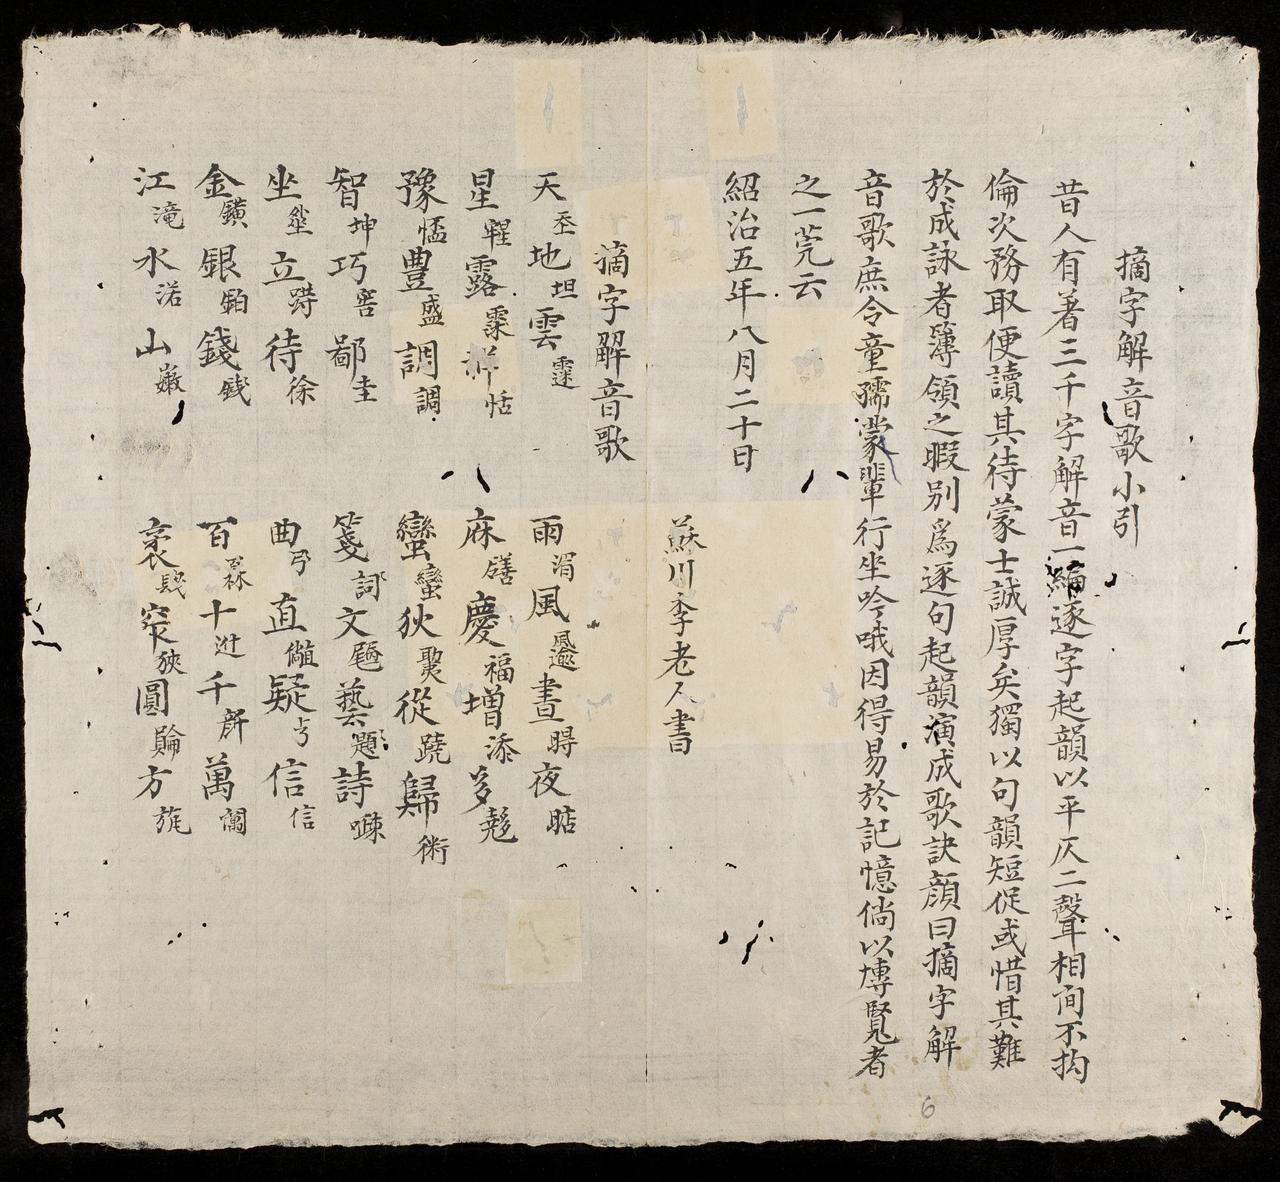 摘字解音歌小引
昔人有著三千字解音一編逐字起韻以平仄二聲相間不拘
倫次務取便讀其待蒙士誠厚矣獨以句韻短促或惜其難
於成詠者簿領之暇别爲逐句起韻演成歌訣顔曰摘字解
音歌庶令童孺蒙輩行坐吟哦因得易於記憶倘以博覧者
之一莞云
紹治五年八月二十日
蘇川季老人書
摘字解音歌
天𡗶地坦雲𩄲 雨湄風𩙋晝𣇜夜𣈘
星𣇟露霂祥恬 麻𢊗慶福增添多𡗉
豫㥥豐盛調調 蠻蠻狄從蹺歸術
智坤巧窖鄙圭 箋詞文藝題詩㗂
坐𡎢立待徐 曲直疑信信
金鐄銀鉑錢𨨷 百𤾓十𨒒千𠦳萬𨷈
江滝水渃山 袤窄狹圓方
6